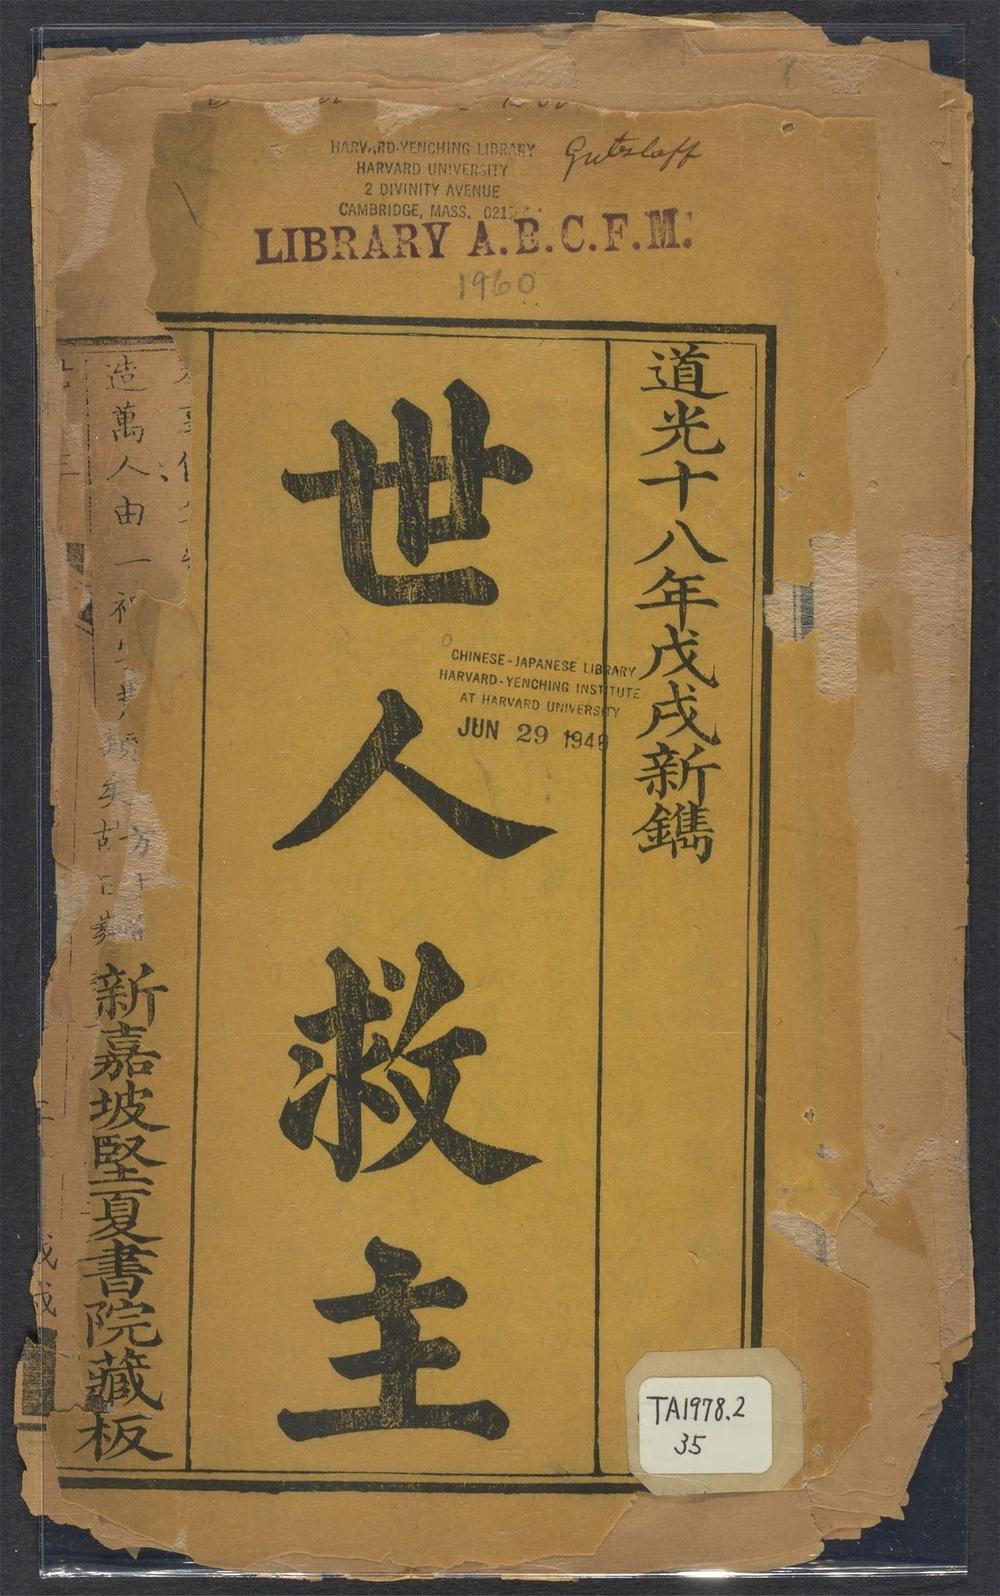 HARVARD-YENCHING LIBRARY
HARVARD UNIVERSITY
2 DIVINITY AVENUE
CAMBRIDGE, MASS.
Gutslaff
LIBRARY A.B.C.F.M.
1960
道光十八年戊戌新鐫
世人救主
新嘉坡堅夏書院藏板
CHINESE-JAPANESE LIBRARY
HARVARD-YENCHING INSTITUTE
AT HARVARD UNIVERSITY
JUN 29 1940
造萬人由一
TA1978.2
35